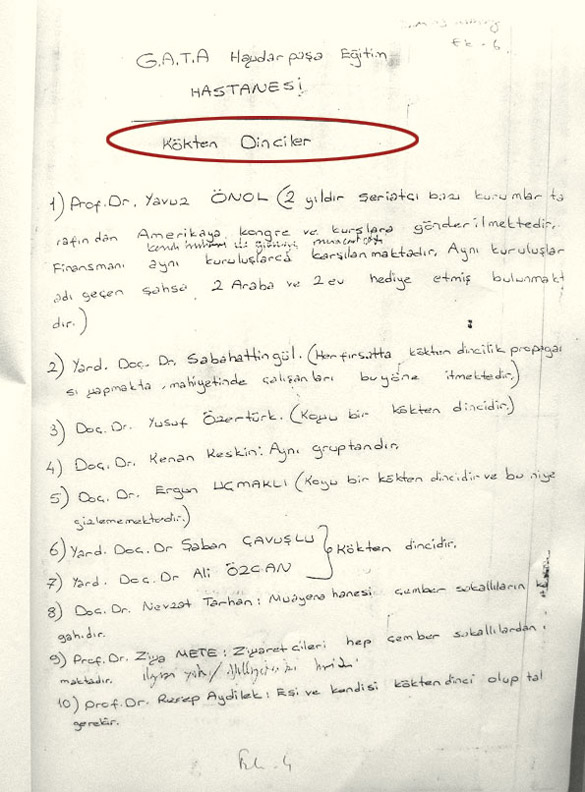 Ek - 6.
G.A.T.A Haydarpaşa Eğitim
HASTANESİ
Kökten Dinciler
1) Prof. Dr. Yavuz ÖNOL (2 yıldır şeriatçı bazı kurumlar ta
rafından Amerikaya kongre ve kurslara gönderilmektedir.
Finansmanı aynı kuruluşlarca karşılanmaktadır. Aynı kuruluşlar
adı geçen şahsa 2 Araba ve 2 ev hediye etmiş bulunmakt
dır.)
2) Yard. Doç. Dr. Sabahattin gül. (Her fırsatta kökten dincilik propagan
sı yapmakta, mahiyetinde çalışanları bu yöne itmektedir.)
3) Doç. Dr. Yusuf Özertürk. (Koyu bir kökten dincidir.)
4) Doç. Dr. Kenan Keskin: Aynı gruptandır.
5) Doç. Dr. Ergun UÇMAKLI (Koyu bir kökten dincidir ve bu niye
gizlememektedir.)
6) Yard. Doç. Dr Şaban ÇAVUŞLU
7) Yard. Doç. Dr Ali ÖZCAN
Kökten dincidir.
8) Doç. Dr. Nevzat Tarhan: Muayenehanesi çember sakallıların
gahıdır.
9) Prof. Dr. Ziya METE: Ziyaretcileri hep çember sakallılardan
maktadır.
10) Prof. Dr. Recep Aydilek: Eşi ve kendisi kökten dinci olup tal
gerekir.
Ek. 4